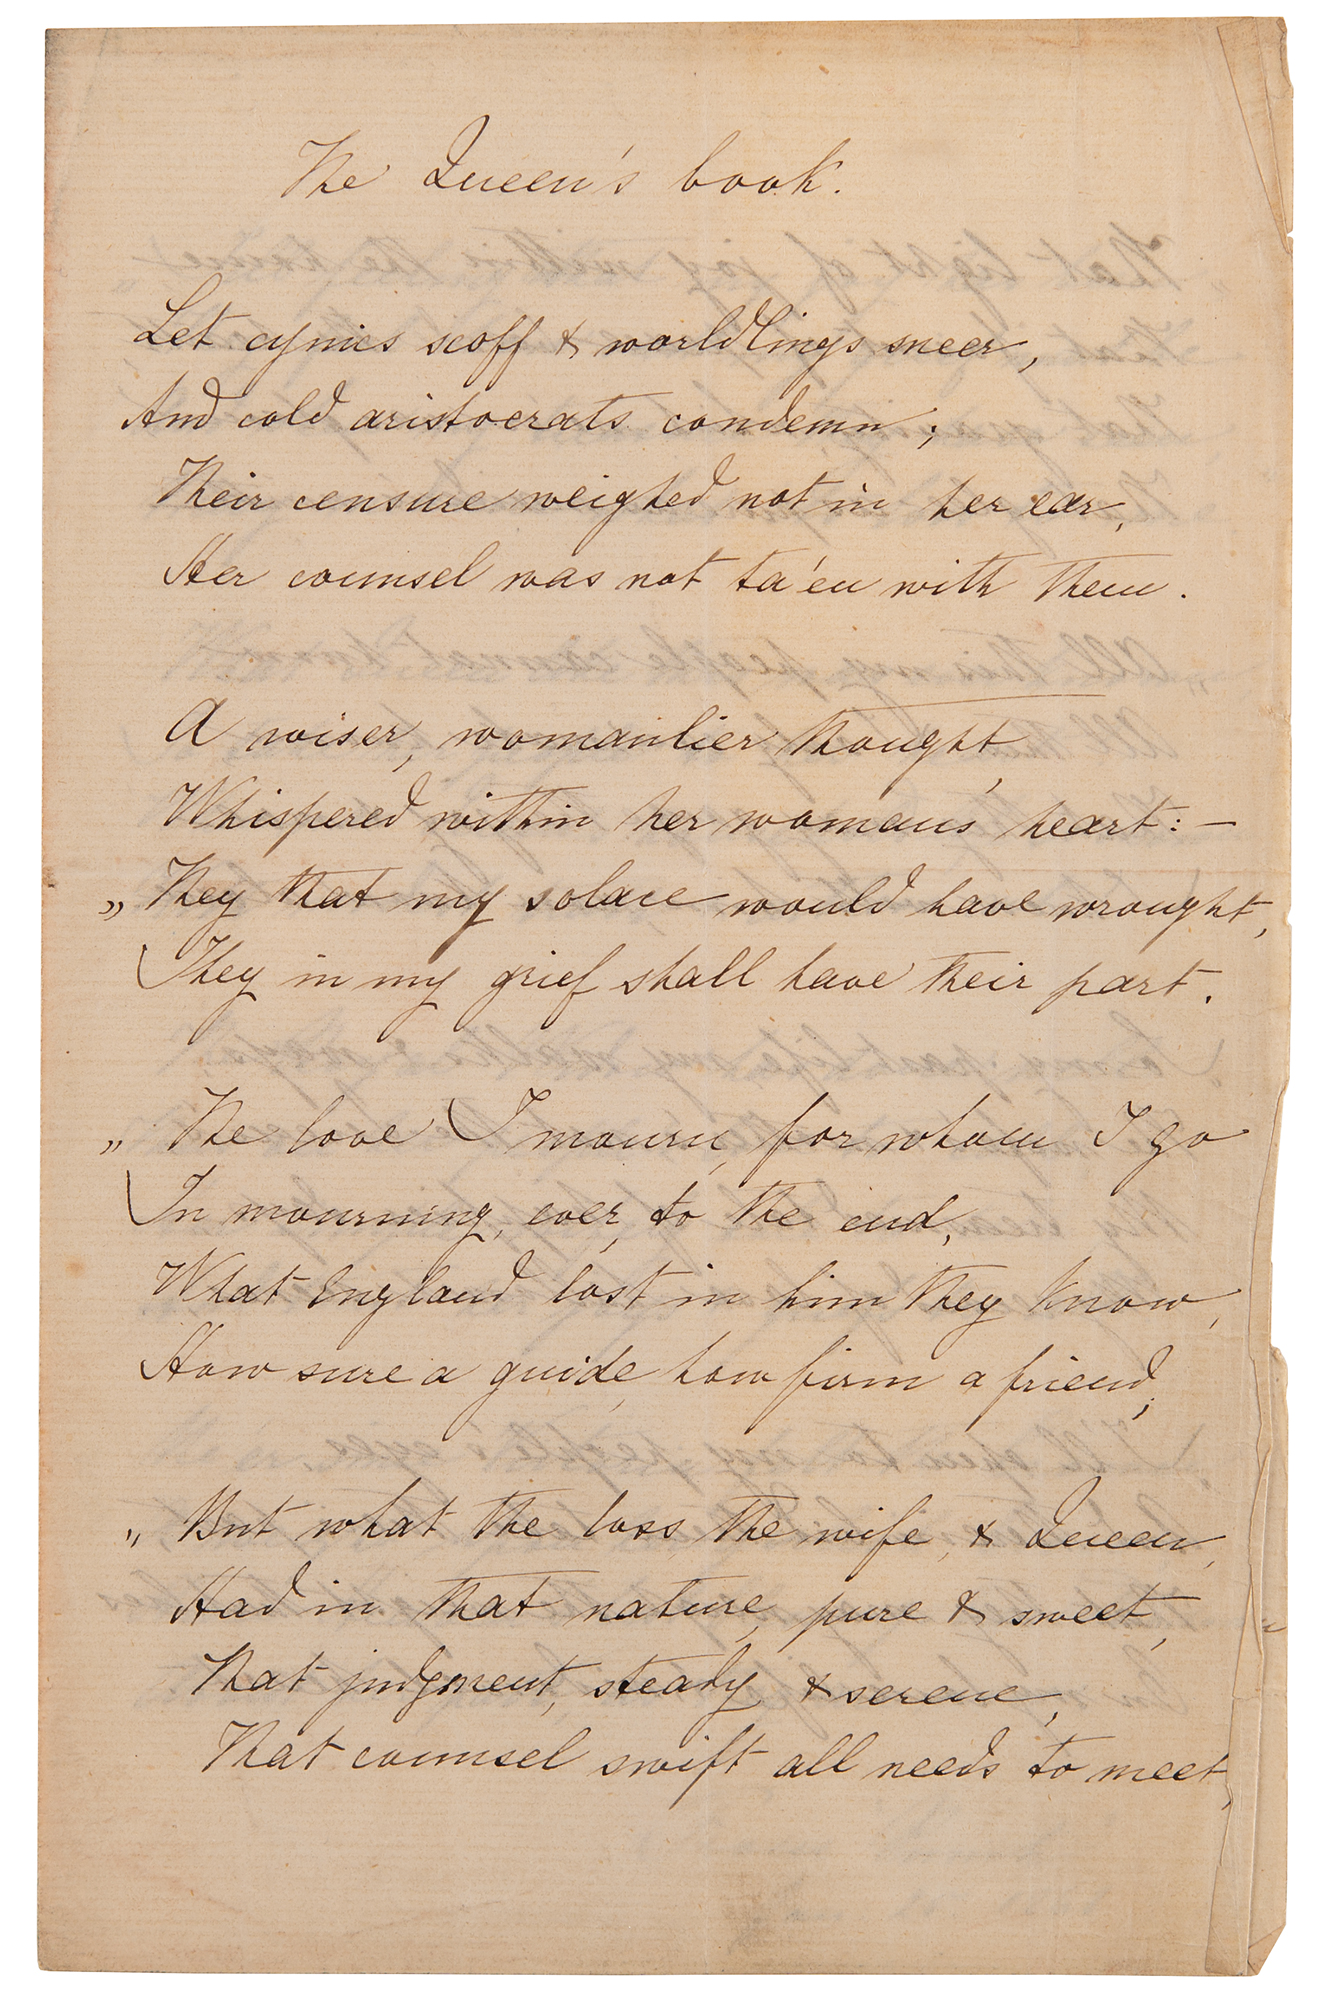 The Queen's book.
Let cynics scoff & worldlings sneer,
And cold aristocrats condemn;
Their censure weighed not in her ear,
Her counsel was not ta'en with them.
A wiser, womanlier thought,
Whispered within her woman's heart:—
„ They that my solace would have wrought,
They in my grief shall have their part.
„ The love I mourn, for whom I go
In mourning, ever, to the end,
What England lost in him they know,
How sure a guide, how firm a friend;
„ But what the loss, the wife, & Queen,
Had in that nature, pure & sweet,
That judgment, steady & serene,
That counsel swift all needs to meet,